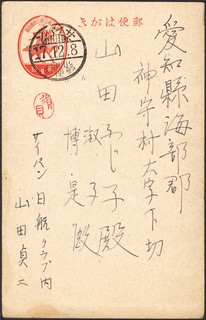 郵便はがき
12.8
愛知縣海部郡
神守村大字下切
山田ふじ子殿
淑子
博是殿
サイパン日航クラブ内
山田貞二